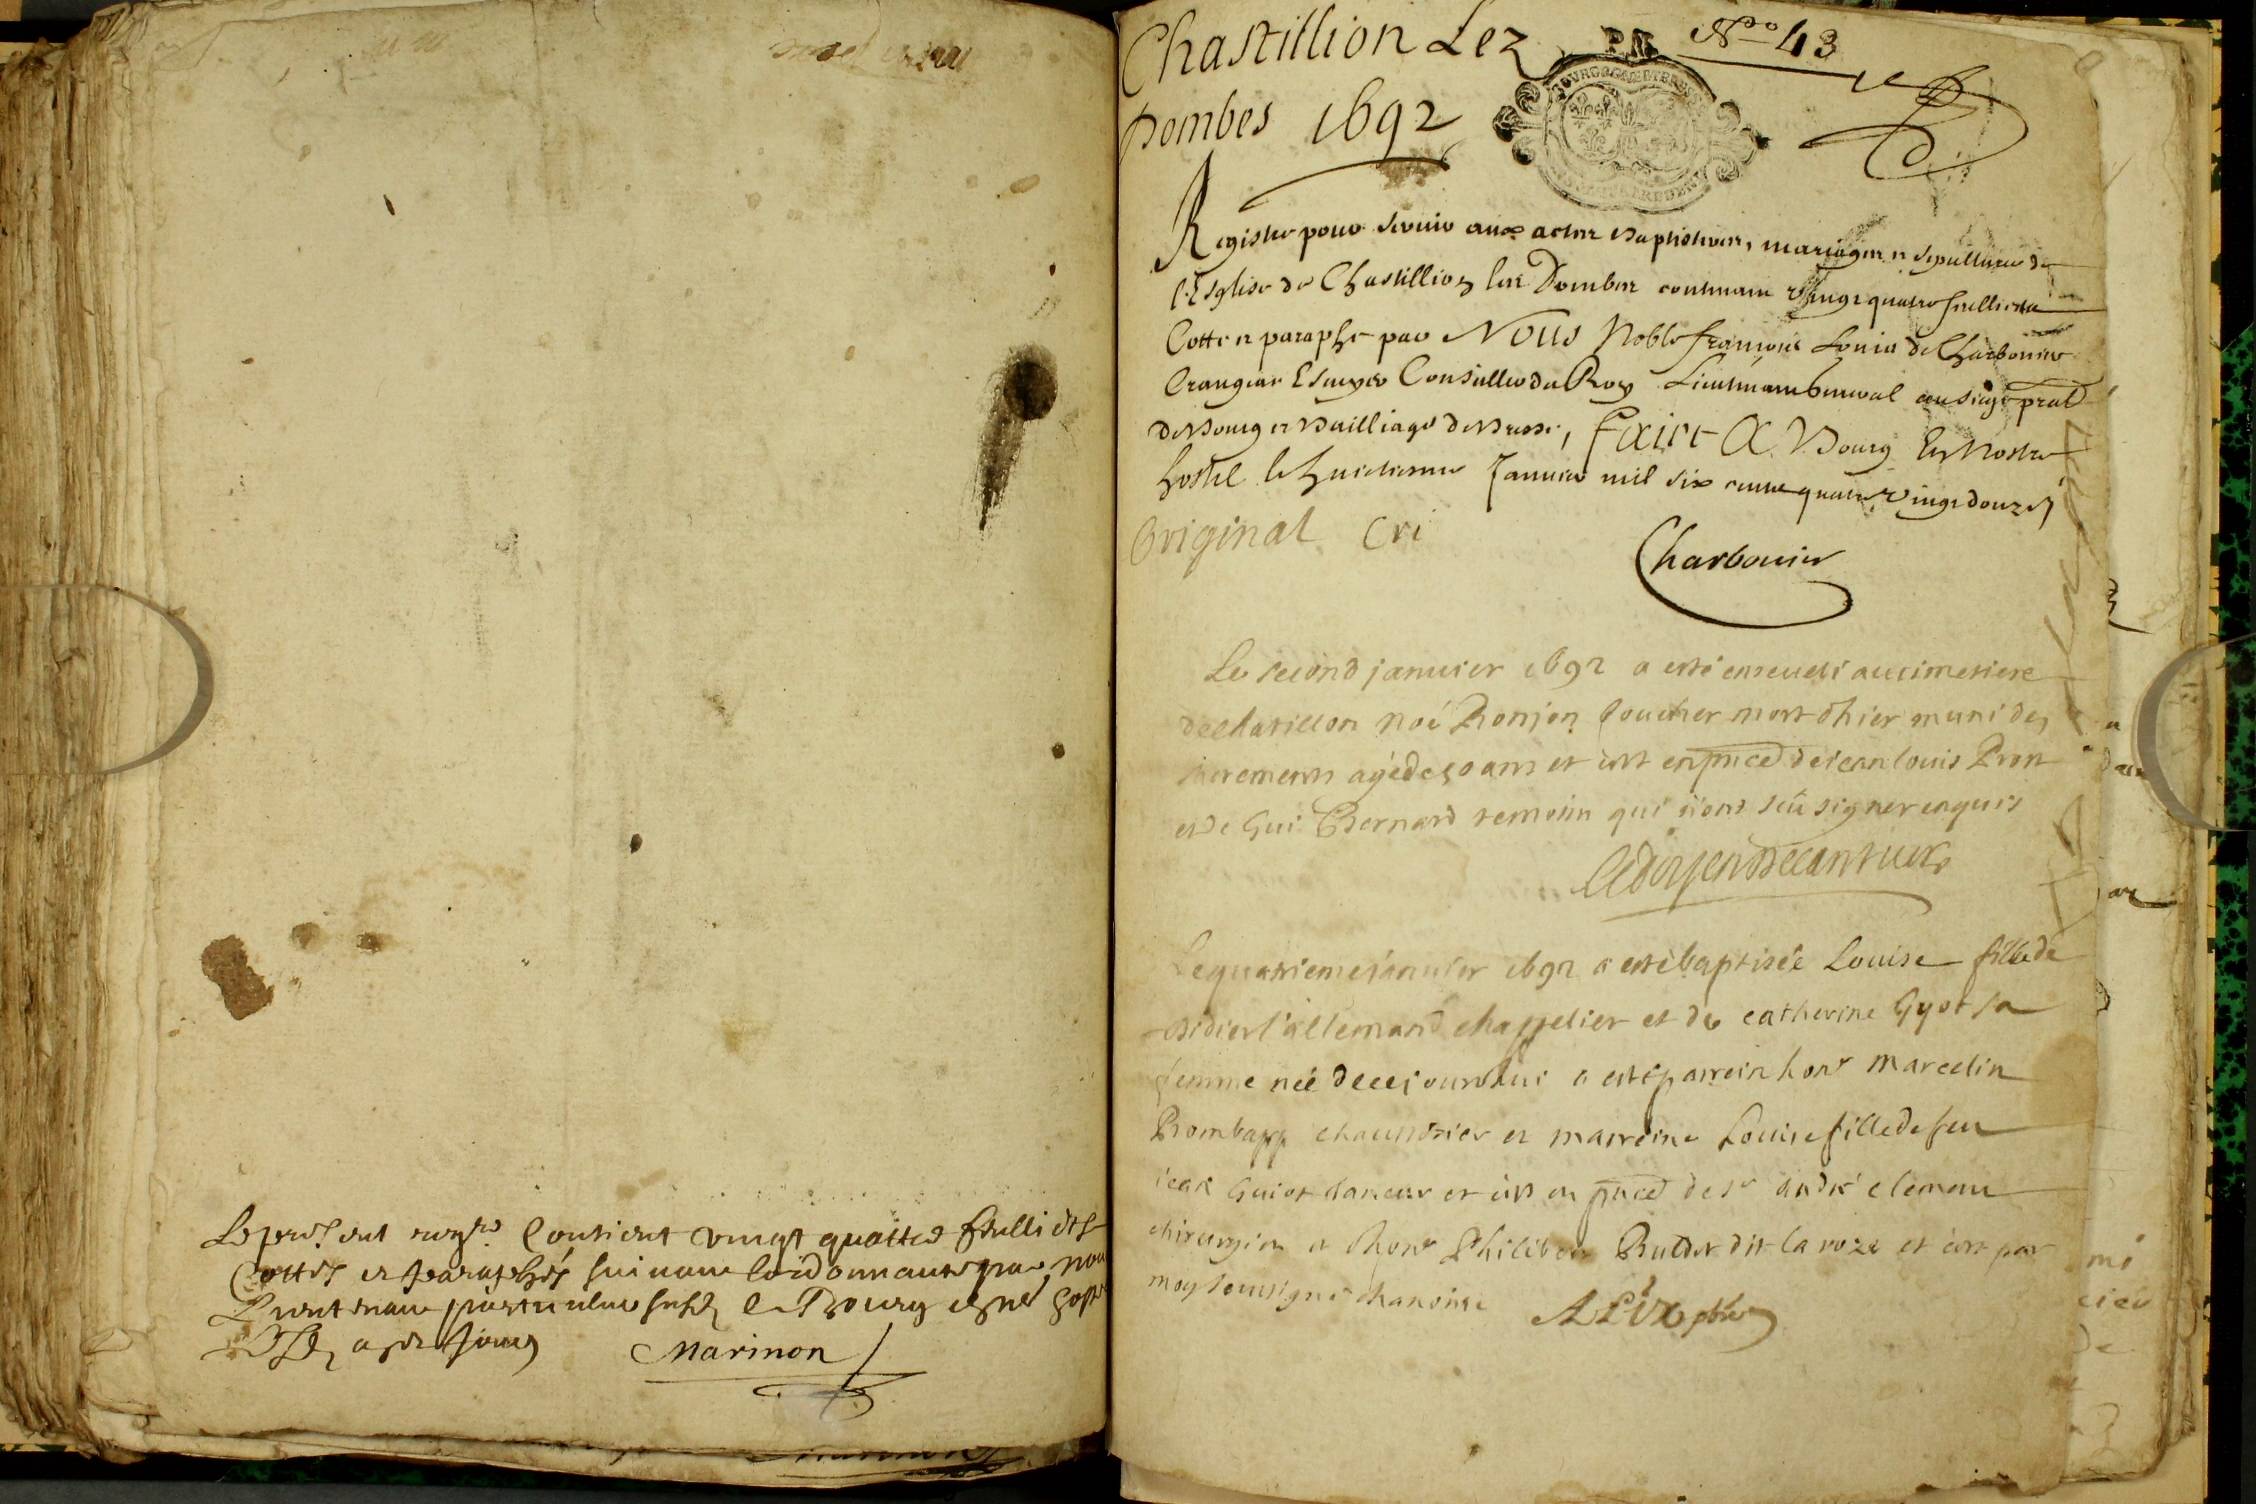 Le present contient vingt quattre feullietz
Cottés et paraphés suivant lordonnance par nou
Lieutenant particulier Bourg
Marinon
Chastillion Lez
Dombes 1692
P. N. No 43
Registre pour servir aux actes Baptistaires, mariages et sepultures de
l'Esglise de Chastillion les Dombes contenant vingt quatre feullietz
Cotté et paraphé par Nous Noble françois Louis de Charbonier
Crangeac Escuyer Conseiller du Roy Lieutenant General au siege pral
de Bourg et Bailliage de Bresse, Faict A Bourg En Nostre
hostel le huictiesme Janvier mil six cents quatre vingt douze
Original Cri
Charbonier
Le second janvier 1692 a esté enseveli au cimetiere
de chatillon noé Ronjon boucher mort d'hier muni des
sacrements agé de 50 ans et c'est en pnce de jean louis Pront
et de Gui Bernard temoin qui n'ont sçu signer enquis
Le quatrieme janvier 1692 a esté baptisée Louise fille de
didier l'allemand chappelier et de catherine Gyot sa
femme née de ce jourdhui a esté parrein honr marcelin
chaudronier et marreine Louise fille de feu
jean Guiot et c'est en pnce de sr andré clement
chirurgien et honr Philibert dit la roze et c'est par
moy soussigné chanoine